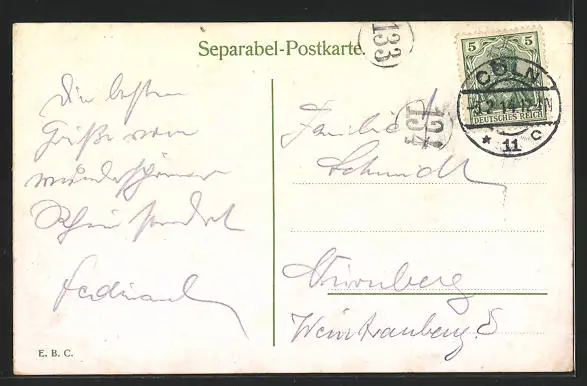 Separabel-Postkarte
133
134
5 5
DEUTSCHES REICH
CÖLN
.2.14.12-1N
* 11 c
Die besten
Grüße vom
wunderschönen
Rhein sendet
Ferdinand
Familie
Schmidt
Nürnberg
E. B. C.